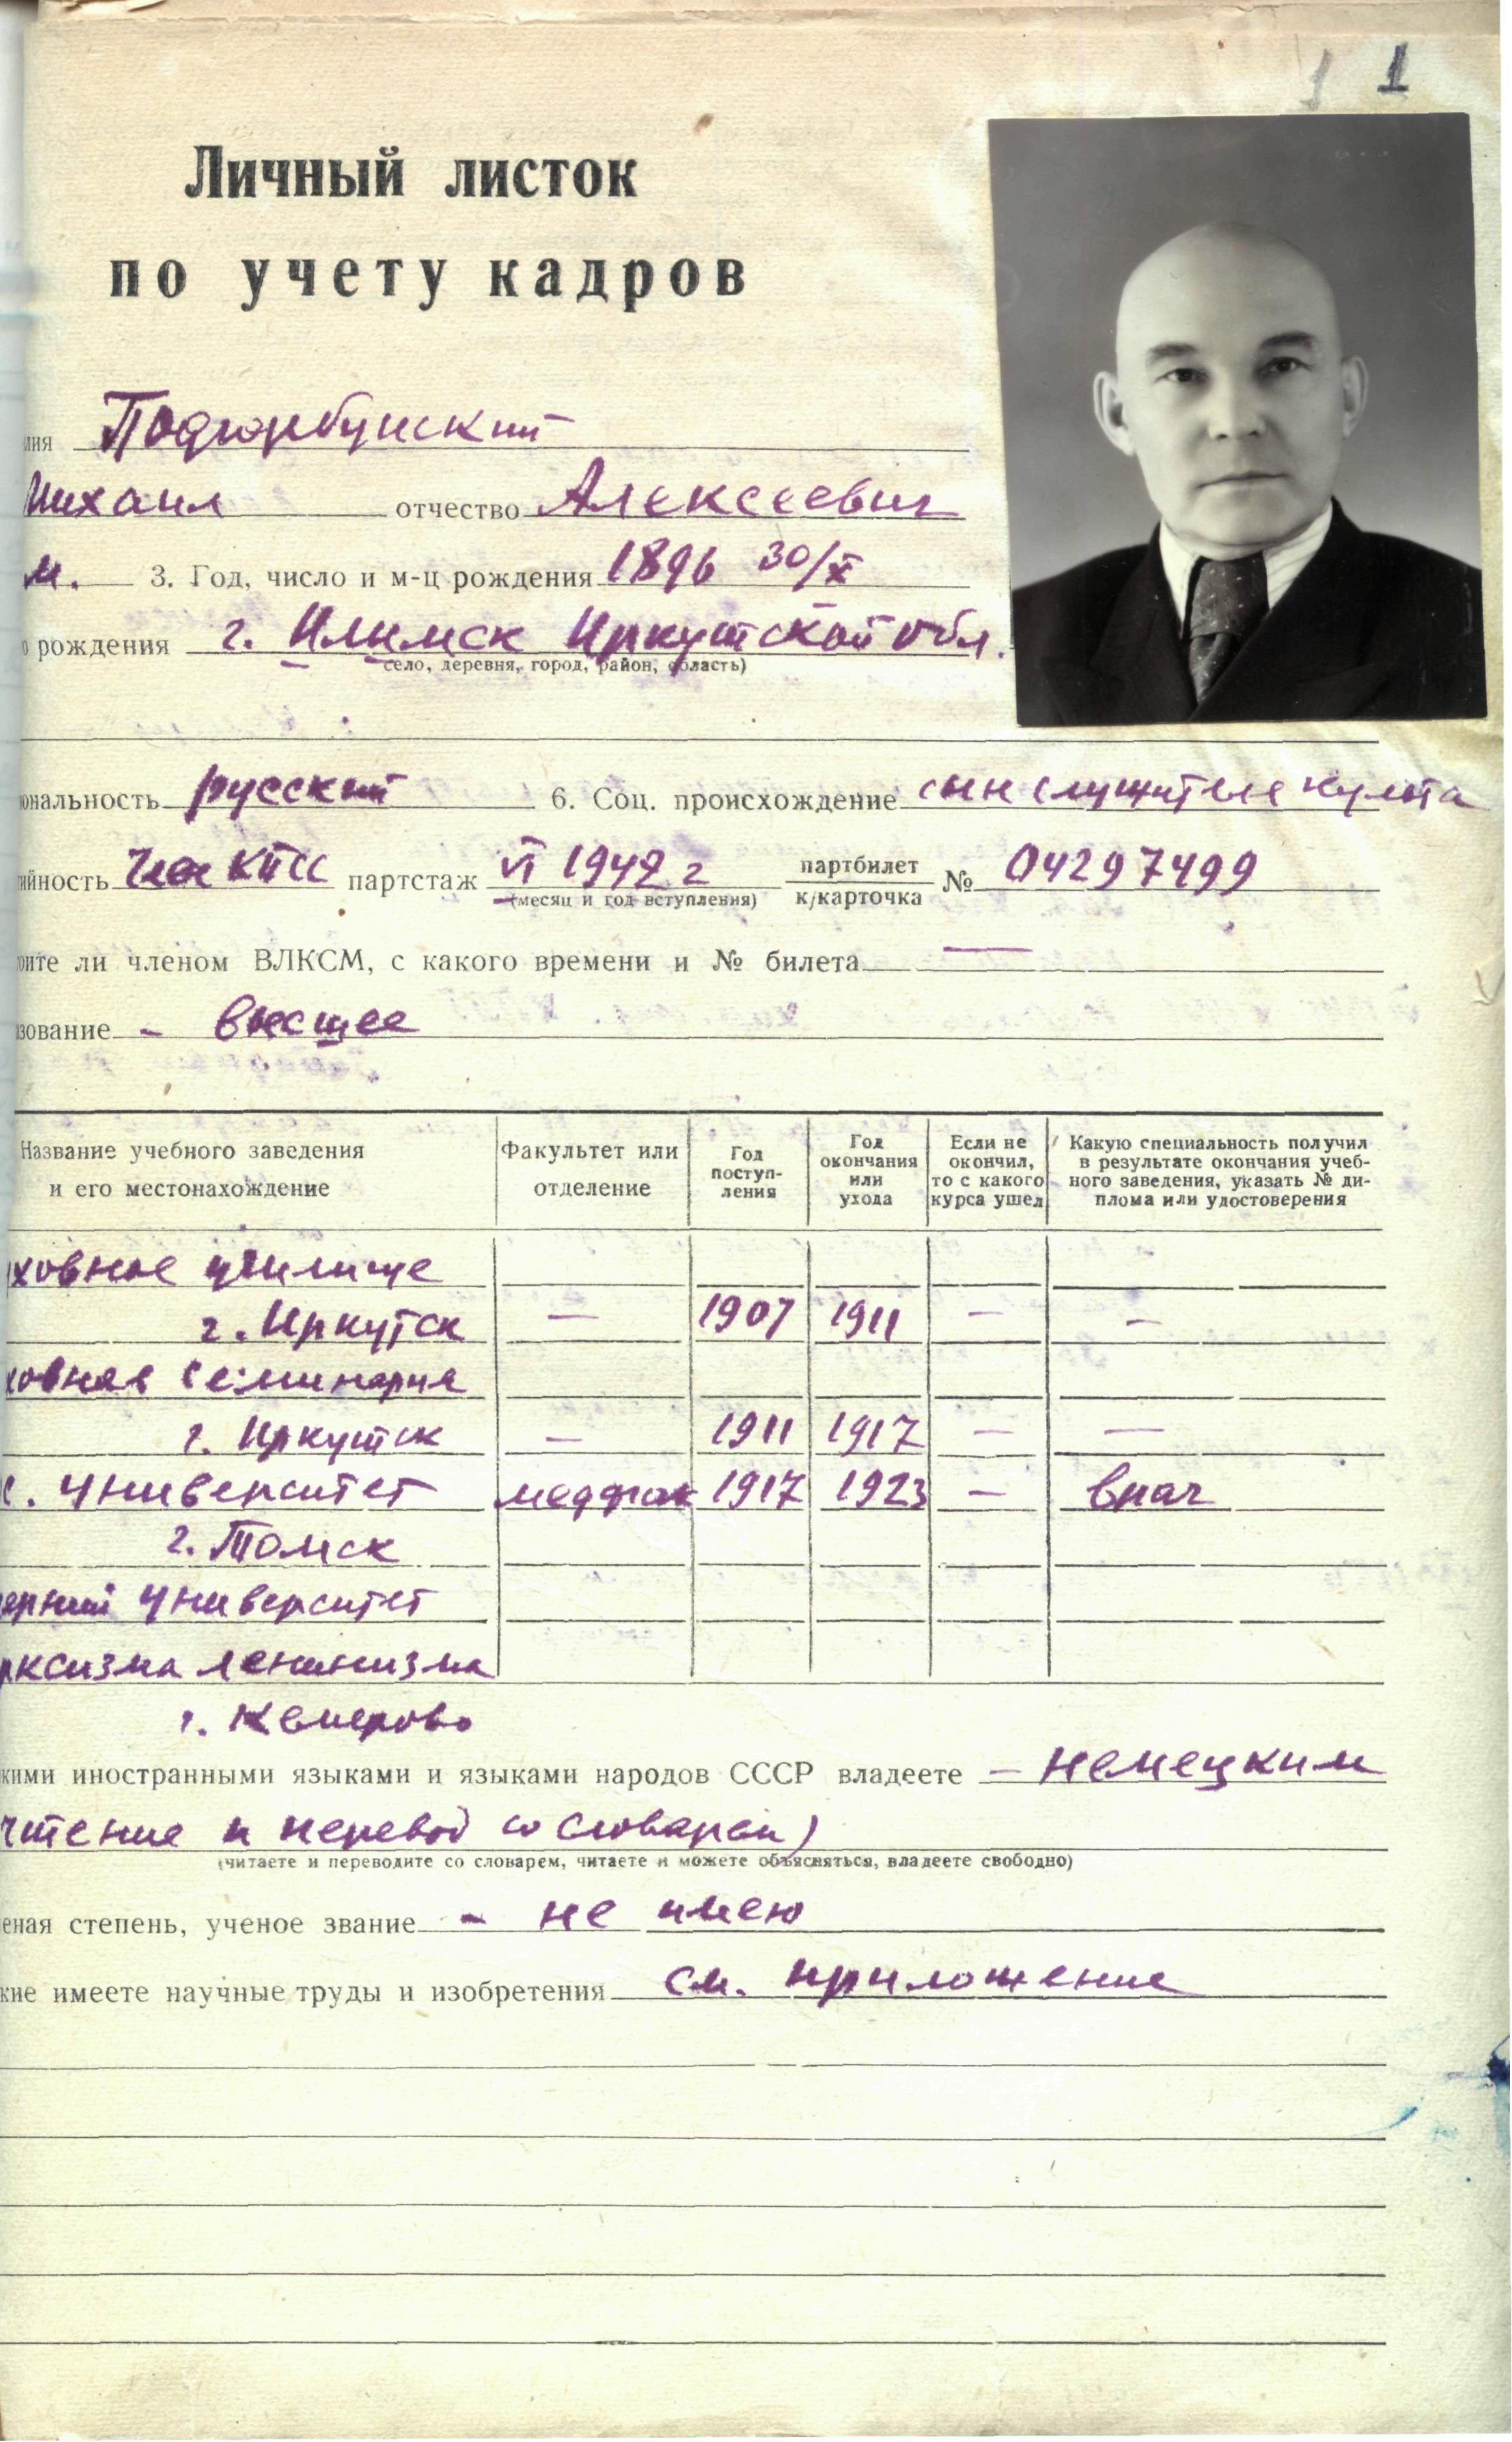 1 1
Личный листок
по учету кадров
мия Подгорбунский
Михаил отчество Алексеевич
м. 3. Год, число и м-ц рождения 1896 30/X
о рождения г. Илимск Иркутской обл.
село, деревня, город, район, область)
ональность русский 6. Соц. происхождение сын служителя культа
тийность Член КПСС партстаж VI 1942 г партбилет № 04297499
(месяц и год вступления) к/карточка
оите ли членом ВЛКСМ, с какого времени и № билета —
зование - высшее
Название учебного заведения и его местонахождение Факультет или отделение Год поступ-ления Год окончания или ухода Если не окончил, то с какого курса ушел Какую специальность получил в результате окончания учеб-ного заведения, указать № ди-плома или удостоверения
ховное училище
г. Иркутск — 1907 1911 — —
ховная семинария
г. Иркутск — 1911 1917 — —
с. университет медфак 1917 1923 — врач
г. Томск
ерний университет
рксизма ленинизма
г. Кемерово
кими иностранными языками и языками народов СССР владеете — немецким
чтение и перевод со словарем)
(читаете и переводите со словарем, читаете и можете объясняться, владеете свободно)
еная степень, ученое звание - не имею
кие имеете научные труды и изобретения см. приложение